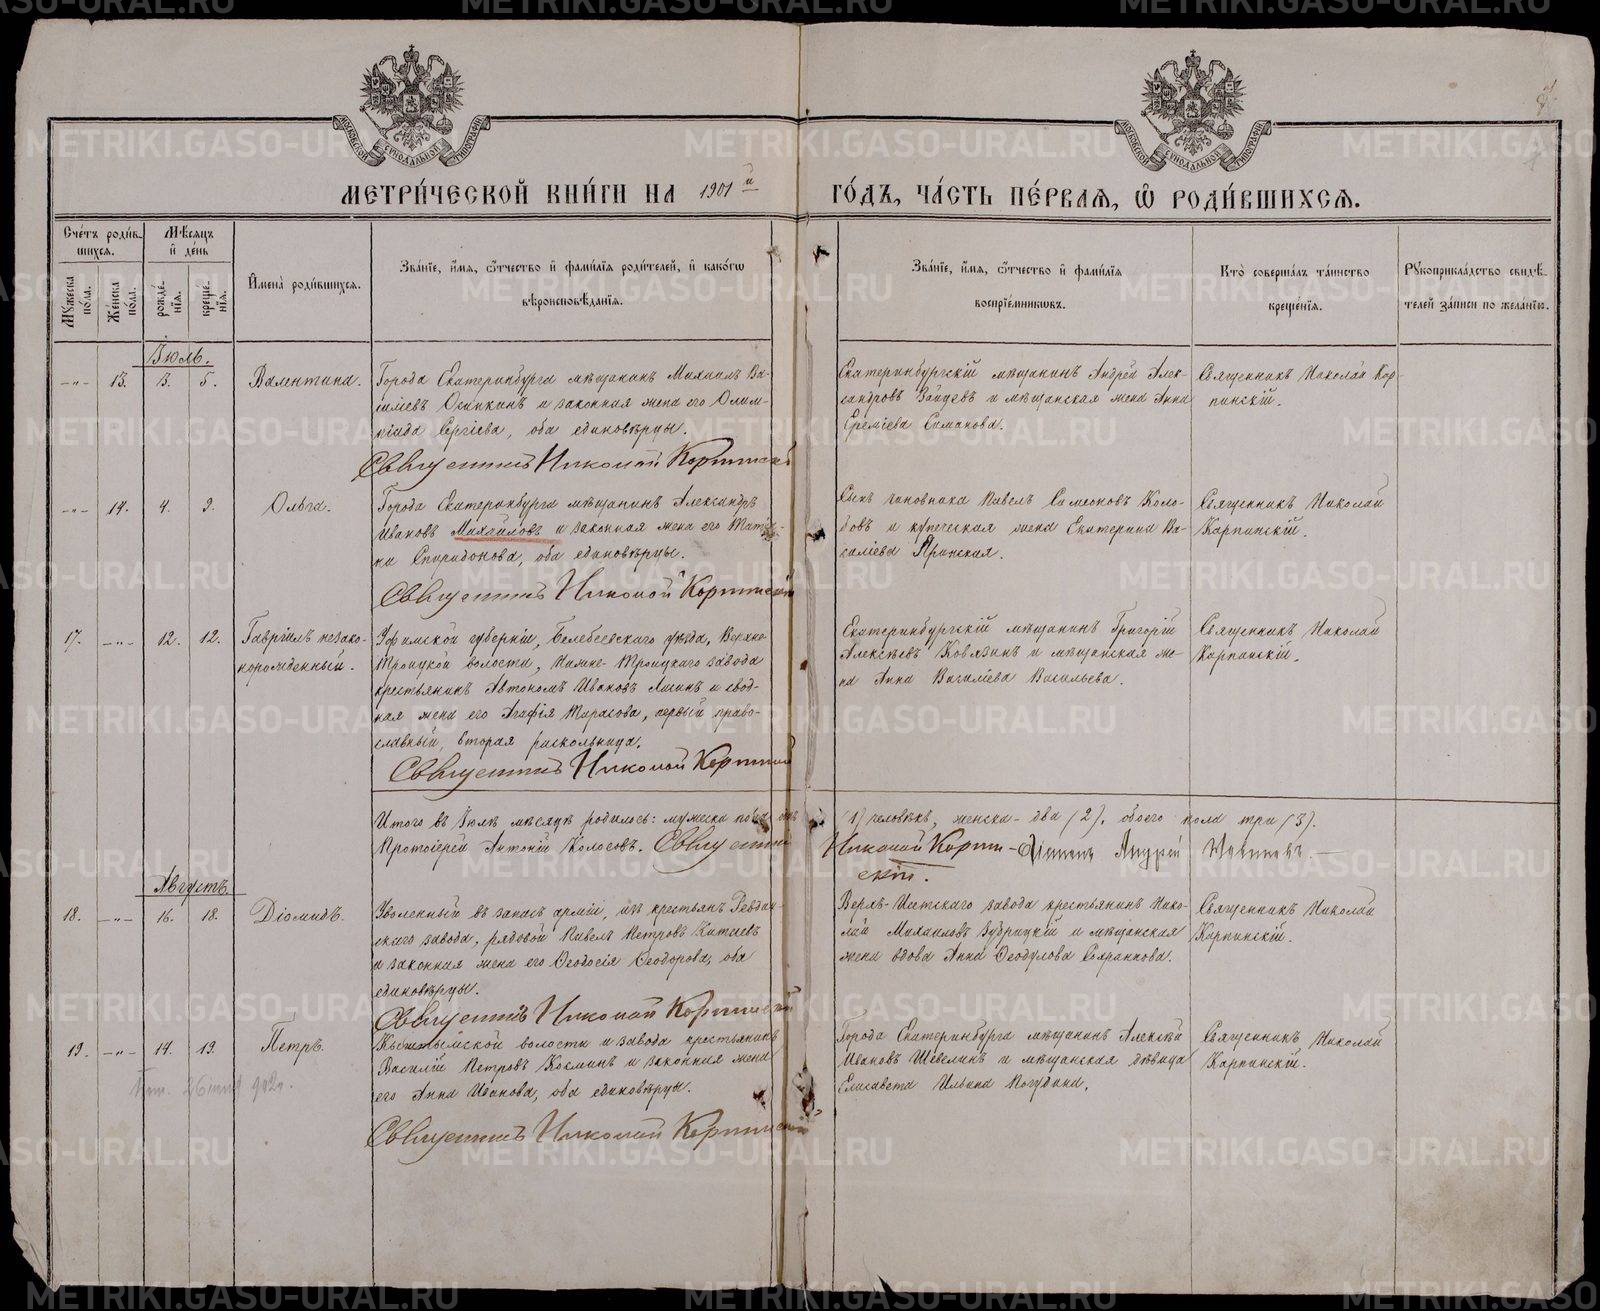 МЕТРИ́ЧЕСКОЙ КНИ́ГИ НА 1901й ГО́ДЪ, ЧА́СТЬ ПЕ́РВАЯ, Ѡ РОДИ́ВШИХСЯ.
МОСКОВСКОЙ СѴНОДАЛЬНОЙ ТИПОГРАФІИ
МОСКОВСКОЙ СѴНОДАЛЬНОЙ ТИПОГРАФІИ
Сче́тъ роди́вшихся.
Му́жеска по́ла.
Же́нска по́ла.
Мѣ́сяцъ и҆ де́нь
рожде́нїя.
креще́нїя.
И҆мена̀ роди́вшихся.
Зва́нїе, и҆́мя, ѻ҆́тчество и҆ фами́лїя роди́телей, и҆ како́гѡ
вѣроисповѣ́данїя.
Зва́нїе, и҆́мя, ѻ҆́тчество и҆ фами́лїя
воспрїе́мникѡвъ.
Кто̀ соверша́лъ та́инство
креще́нїя.
Рꙋкоприкла́дство свидѣ́телей за́писи по жела́нїю.
Іюль.
-„- 13. 3. 5. Валентина.
Города Екатеринбурга мѣщанинъ Михаилъ Ва-
силіевъ Осипкинъ и законная жена его Олим-
піада Сергіева, оба единовѣрцы.
Священникъ Николай Карпинскій
Екатеринбургскій мѣщанинъ Андрей Алек-
сандровъ Зайцевъ и мѣщанская жена Анна
Еремѣева Симанова.
Священникъ Николай Кар-
пинскій.
-„- 14. 4. 9. Ольга.
Города Екатеринбурга мѣщанинъ Александръ
Ивановъ Михайловъ и законная жена его Татья-
на Спиридонова, оба единовѣрцы.
Священникъ Николай Карпинскій
Сынъ чиновника Павелъ Симеоновъ Коло-
бовъ и купеческая жена Екатерина Ва-
силіева Яринская.
Священникъ Николай
Карпинскій.
17. -„- 12. 12. Гавріилъ незако-
норожденный.
Уфимской губерніи, Белебеевскаго уѣзда, Верхне-
Троицкой волости, Нижне-Троицкаго завода
крестьянинъ Автономъ Ивановъ Лисинъ и свод-
ная жена его Агафія Тарасова, первый право-
славный, вторая раскольница.
Священникъ Николай Карпинскій
Екатеринбургскій мѣщанинъ Григорій
Алексѣевъ Ковязинъ и мѣщанская же-
на Анна Василіева Васильева.
Священникъ Николай
Карпинскій.
Итого въ Іюлѣ мѣсяцѣ родилось: мужеска пола одинъ (1) человѣкъ, женска - два (2), обоего пола три (3).
Протоіерей Антоній Колосовъ. Священникъ Николай Карпин-
скій.
Андрей
Августъ.
18. -„- 16. 18. Діомидъ.
Уволенный въ запасъ арміи, изъ крестьянъ Ревдин-
скаго завода, рядовой Павелъ Петровъ Китаевъ
и законная жена его Ѳеодосія Ѳеодорова, оба
единовѣрцы.
Священникъ Николай Карпинскій
Верхъ-Исетскаго завода крестьянинъ Нико-
лай Михаиловъ Зубрицкій и мѣщанская
жена вдова Анна Ѳеодулова
Священникъ Николай
Карпинскій.
19. -„- 17. 19. Петръ.
Кыштымской волости и завода крестьянинъ
Василій Петровъ Косминъ и законная жена
его Анна Иванова, оба единовѣрцы.
Священникъ Николай Карпинскій
Города Екатеринбурга мѣщанинъ Алексѣй
Ивановъ Шевелинъ и мѣщанская дѣвица
Елисавета Ильина Погудина.
Священникъ Николай
Карпинскій.
METRIKI.GASO-URAL.RU